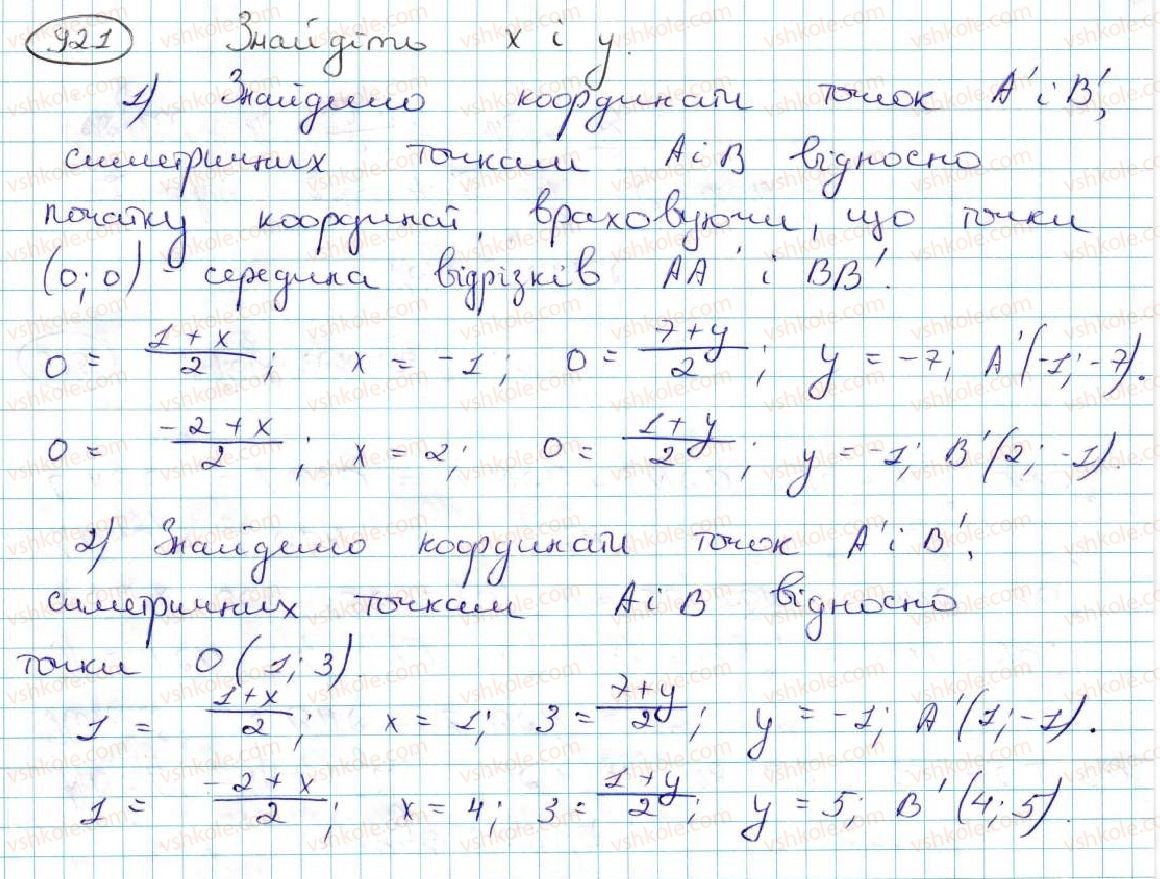 921 Знайдіть x і y.
1) Знайдемо координати точок A' і B',
симетричних точкам A і B відносно
початку координат, враховуючи, що точки
(0; 0) - середина відрізків AA' і BB'.
0 = (1 + x)/2; x = -1; 0 = (7 + y)/2; y = -7; A'(-1; -7).
0 = (-2 + x)/2; x = 2; 0 = (1 + y)/2; y = -1; B'(2; -1).
2) Знайдемо координати точок A' і B',
симетричних точкам A і B відносно
точки O(1; 3).
1 = (1 + x)/2; x = 1; 3 = (7 + y)/2; y = -1; A'(1; -1).
1 = (-2 + x)/2; x = 4; 3 = (1 + y)/2; y = 5; B'(4; 5).
vshkole.com